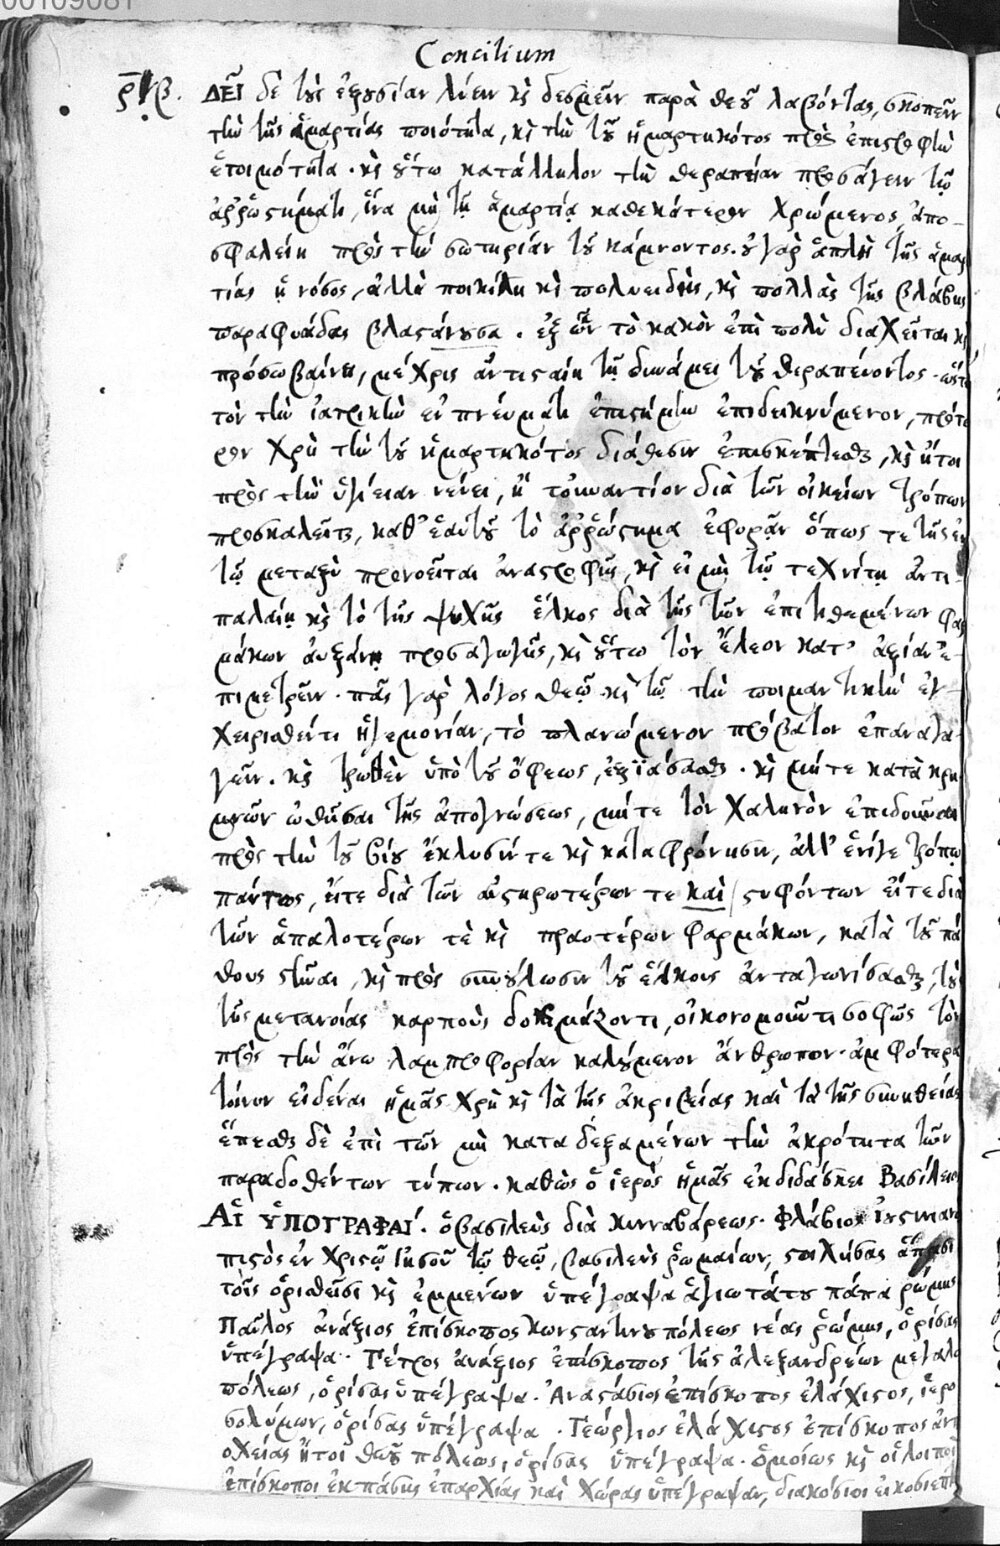 00109081
Concilium
ρβ. ΔΕῖ δὲ τοὺς ἐξουσίαν λύειν καὶ δεσμεῖν παρὰ θεοῦ λαβόντας, σκοπεῖν
τὴν τῆς ἁμαρτίας ποιότητα, καὶ τὴν τοῦ ἡμαρτηκότος πρὸς ἐπιστροφὴν
ἑτοιμότητα· καὶ οὕτω κατάλληλον τὴν θεραπείαν προσάγειν τῷ
ἀῤῥωστήματι, ἵνα μὴ τῇ ἁμαρτίᾳ καθ' ἑκάτερον χρώμενος, ἀπο-
σφαλείη πρὸς τὴν σωτηρίαν τοῦ κάμνοντος. οὐ γὰρ ἁπλῆ τῆς ἁμαρ
τίας ἡ νόσος, ἀλλὰ ποικίλη καὶ πολυειδής, καὶ πολλὰς τῆς βλάβης
παραφυάδας βλαστάνουσα. ἐξ ὧν τὸ κακὸν ἐπὶ πολὺ διαχεῖται καὶ
πρόσω βαίνει, μέχρις ἂν ἀντισταίη τῇ δυνάμει τοῦ θεραπεύοντος. ὥστε
τὸν τὴν ἰατρικὴν ἐν πνεύματι ἐπιστήμην ἐπιδεικνύμενον, πρότε
ρον χρὴ τὴν τοῦ ἡμαρτηκότος διάθεσιν ἐπισκέπτεσθαι, καὶ ἤτοι
πρὸς τὴν ὑγίειαν νεύει, ἢ τοὐναντίον διὰ τῶν οἰκείων τρόπων
προσκαλεῖται, καθ' ἑαυτοῦ τὸ ἀῤῥώστημα ἐφορᾷν ὅπως τε τῆς ἐν
τῷ μεταξὺ προνοεῖται ἀναστροφῆς, καὶ εἰ μὴ τῷ τεχνίτῃ ἀντι-
παλαίῃ καὶ τὸ τῆς ψυχῆς ἕλκος διὰ τῆς τῶν ἐπιτιθεμένων φαρ
μάκων αὐξάνῃ προσαγωγῆς, καὶ οὕτω τὸν ἔλεον κατ' ἀξίαν ἐ-
πιμετρεῖν. πᾶς γὰρ λόγος θεῷ καὶ τῷ τὴν ποιμαντικὴν ἐγ-
χειρισθέντι ἡγεμονίαν, τὸ πλανώμενον πρόβατον ἐπαναγα-
γεῖν. καὶ τρωθὲν ὑπὸ τοῦ ὄφεως, ἐξιάσασθαι. καὶ μήτε κατὰ κρη
μνῶν ὠθῆσαι τῆς ἀπογνώσεως, μήτε τὸν χαλινὸν ἐπιδοῦναι
πρὸς τὴν τοῦ βίου ἔκλυσίν τε καὶ καταφρόνησιν, ἀλλ' ἑνί γε τρόπῳ
πάντως, εἴτε διὰ τῶν αὐστηροτέρων τε καὶ στυφόντων εἴτε διὰ
τῶν ἁπαλοτέρων τὲ καὶ πραοτέρων φαρμάκων, κατὰ τοῦ πά
θους στῆναι, καὶ πρὸς συνούλωσιν τοῦ ἕλκους ἀνταγωνίσασθαι, τοὺ
τῆς μετανοίας καρποὺς δοκιμάζοντι, οἰκονομοῦντι σοφῶς τὸν
πρὸς τὴν ἄνω λαμπροφορίαν καλούμενον ἄνθρωπον. ἀμφότερα
τοίνυν εἰδέναι ἡμᾶς χρὴ καὶ τὰ τῆς ἀκριβείας καὶ τὰ τῆς συνηθείας
ἕπεσθαι δὲ ἐπὶ τῶν μὴ καταδεξαμένων τὴν ἀκρότητα τῶν
παραδοθέντων τύπων. καθὼς ὁ ἱερὸς ἡμᾶς ἐκδιδάσκει Βασίλειος
ΑἹ ὙΠΟΓΡΑΦΑΊ. ὁ βασιλεὺς διὰ κινναβάρεως. Φλάβιος Ἰουστινιανὸ
πιστὸς ἐν Χριστῷ Ἰησοῦ τῷ θεῷ, βασιλεὺς ῥωμαίων, στοιχήσας ἅπασι
τοῖς ὁρισθεῖσι καὶ ἐμμένων ὑπέγραψα ἁγιωτάτου πάπα ῥώμης
Παῦλος ἀνάξιος ἐπίσκοπος κωνσταντινουπόλεως νέας ῥώμης, ὁρίσας
ὑπέγραψα. Πέτρος ἀνάξιος ἐπίσκοπος τῆς ἀλεξανδρέων μεγαλο
πόλεως, ὁρίσας ὑπέγραψα. Ἀναστάσιος ἐπίσκοπος ἐλάχιστος, ἱερο
σολύμων, ὁρίσας ὑπέγραψα. Γεώργιος ἐλάχιστος ἐπίσκοπος ἀντι
οχείας ἤτοι θεοῦ πόλεως, ὁρίσας ὑπέγραψα. ὁμοίως καὶ οἱ λοιποὶ
ἐπίσκοποι ἐκ πάσης ἐπαρχίας καὶ χώρας ὑπέγραψαν, διακόσιοι εἰκοσιεπτ